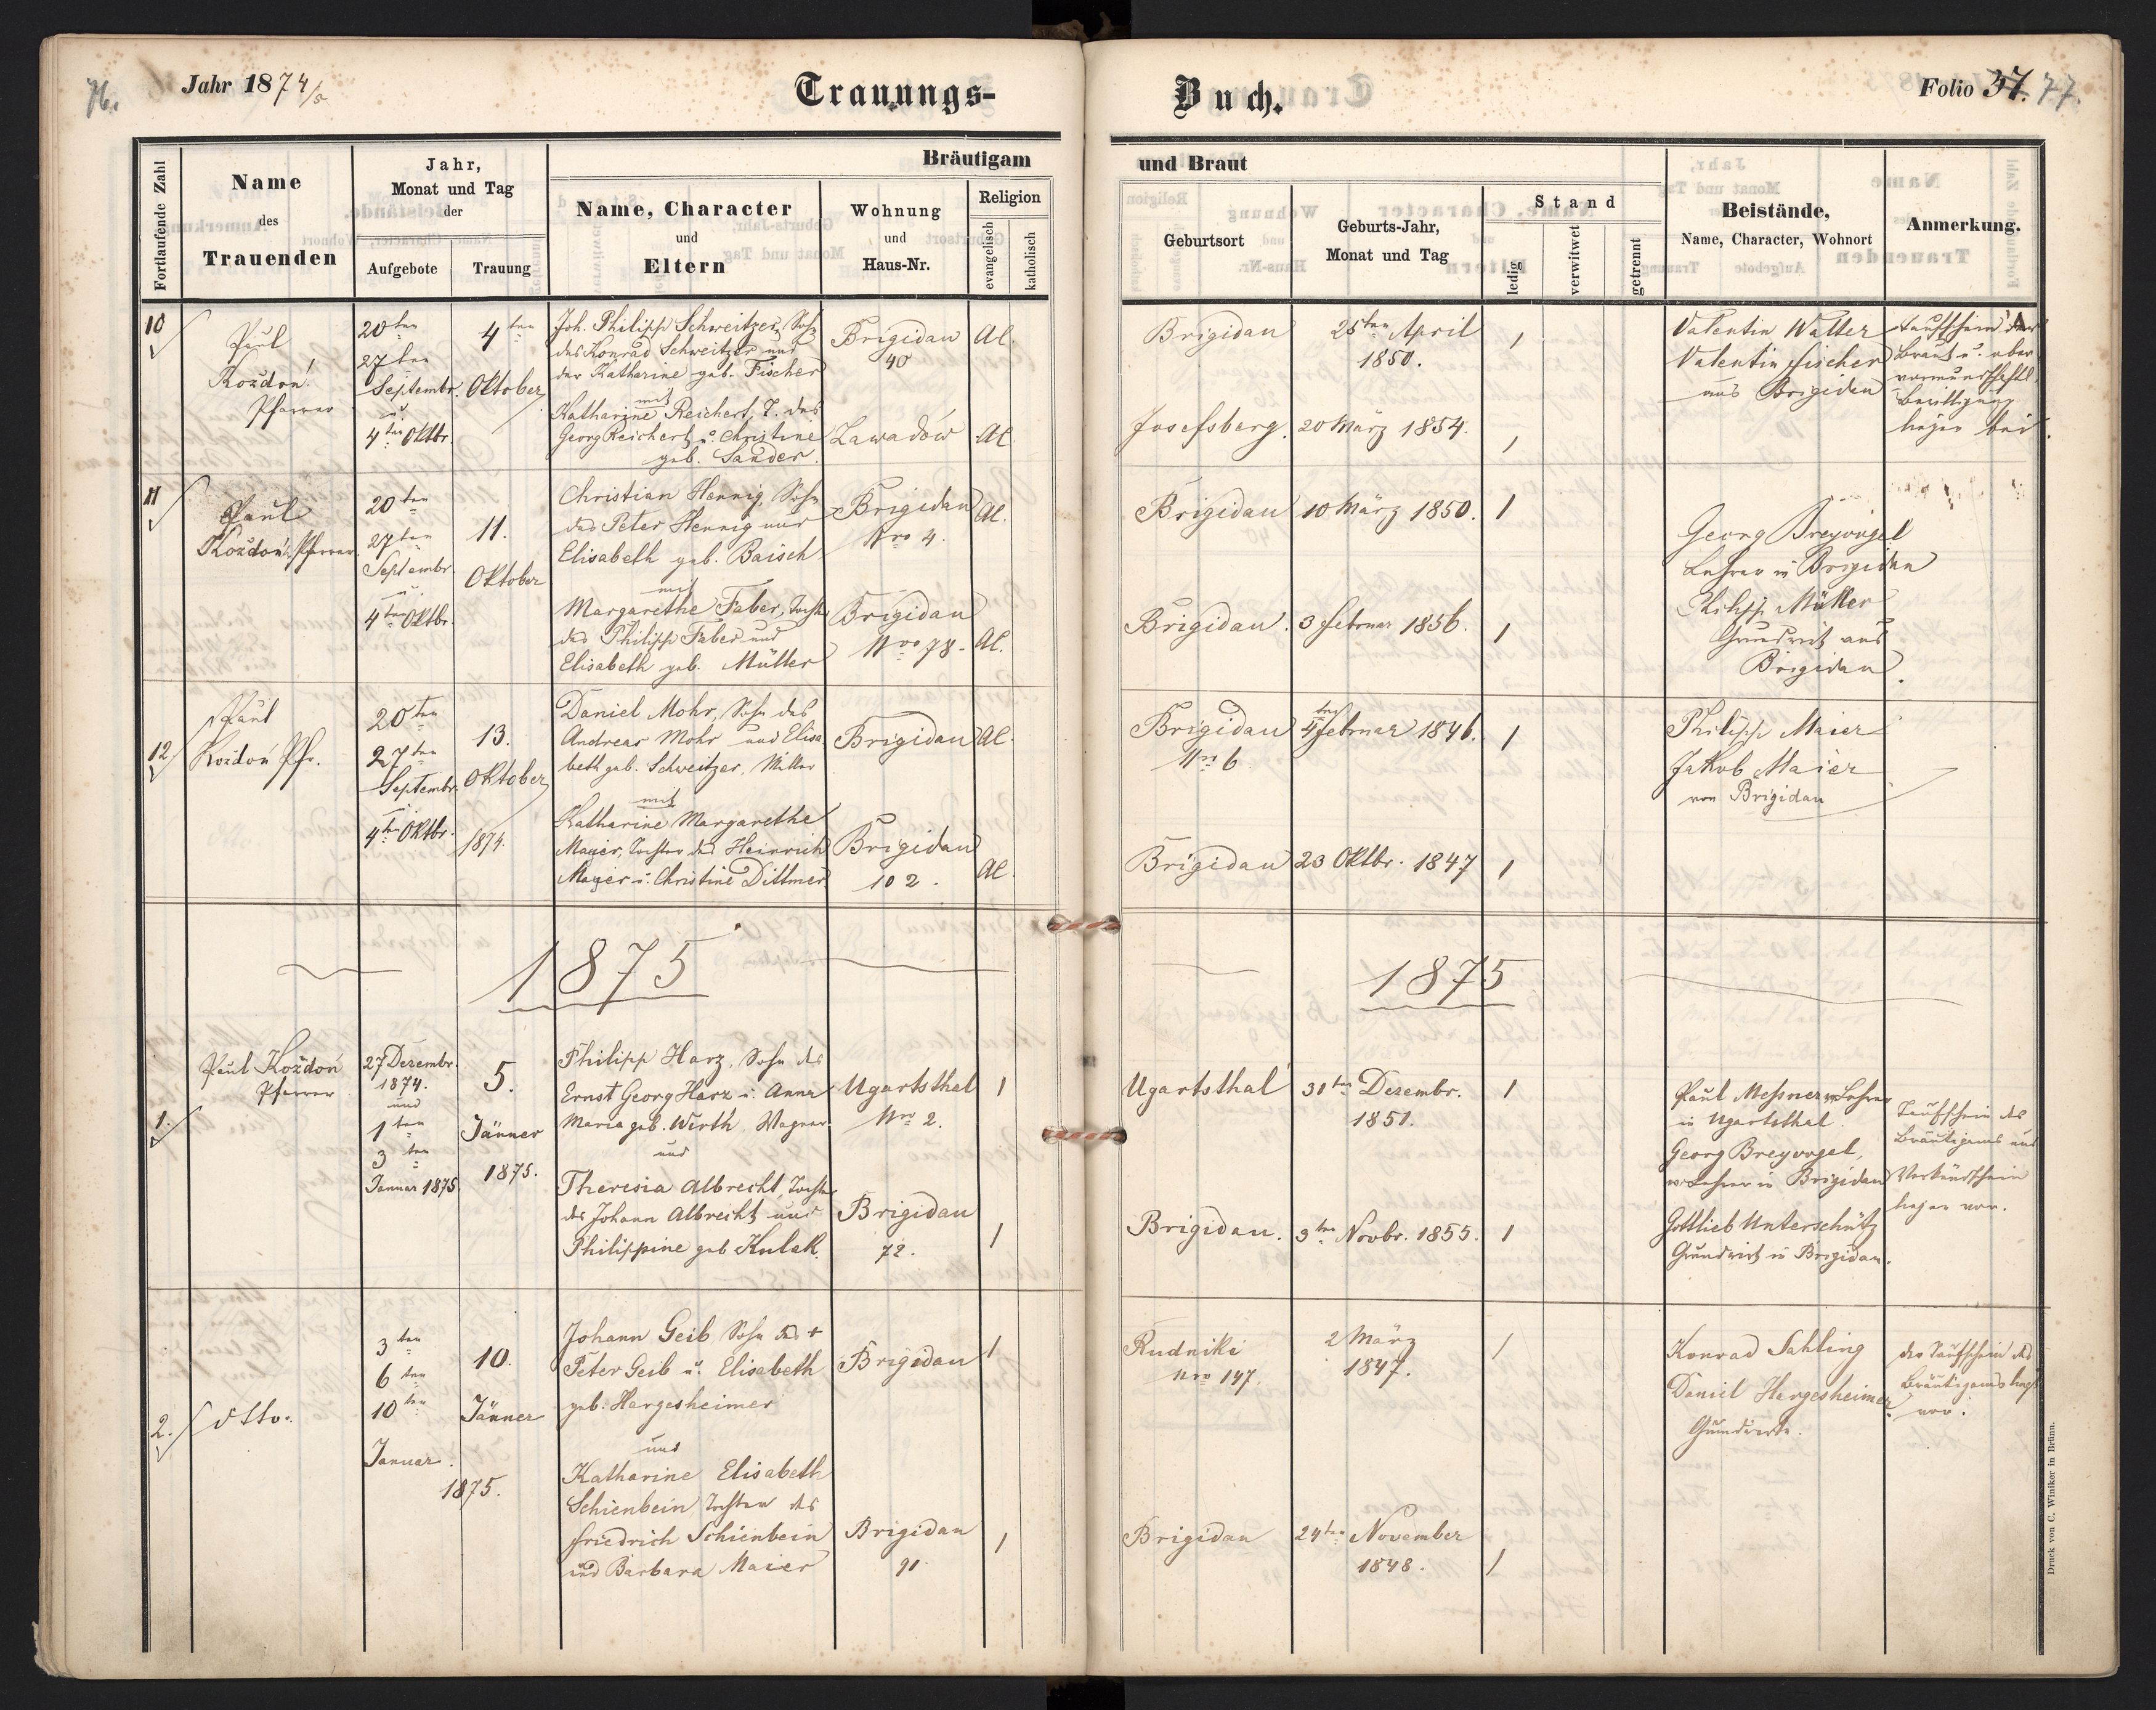 76.
Jahr 1874/5
Trauungs-
Buch.
Folio 37. 77.
Fortlaufende Zahl
Name
des
Trauenden
Jahr,
Monat und Tag
der
Aufgebote
Trauung
Bräutigam
Name, Character
und
Eltern
Wohnung
und
Haus-Nr.
Religion
evangelisch
katholisch
und Braut
Geburtsort
Geburts-Jahr,
Monat und Tag
Stand
ledig
verwitwet
getrennt
Beistände,
Name, Character, Wohnort
Anmerkung.
10
Paul
Koždoń
Pfarrer
20ten
27ten
Septembr.
u.
4ten Oktbr.
4ten
Oktober
Joh. Philipp Schweitzer, Sohn
des Konrad Schweitzer und
der Katharine geb. Fischer
mit
Katharine Reichert, T. des
Georg Reichert u. Christine
geb. Sander.
Brigidau
40
Zawadów
Al.
Al.
Brigidau
Josefsberg.
25ten April
1850.
20 März 1854.
1
1
Valentin Walter
Valentin Fischer
aus Brigidau
Taufschein der
Braut u. ober
vormundschaftl.
Bewilligung
liegen bei.
11
Paul
Koždoń Pfarrer
20ten
27ten
Septembr.
u.
4ten Oktbr.
11.
Oktober
Christian Hennig, Sohn
des Peter Hennig und
Elisabeth geb. Baisch
mit
Margarethe Faber, Tochter
des Philipp Faber und
Elisabeth geb. Müller
Brigidau
Nro 4.
Brigidau
Nro 78.
Al.
Al.
Brigidau
Brigidau.
10 März 1850.
3 Februar 1856.
1
1
Georg Breyvogel
Lehrer in Brigidau
Philipp Müller
Grundwirt aus
Brigidau.
12
Paul
Koždoń Pfr.
20ten
27ten
Septembr.
u.
4ten Oktbr.
13.
Oktober
1874.
Daniel Mohr, Sohn des
Andreas Mohr und Elisa
beth geb. Schweitzer,
mit
Katharine Margarethe
Mayer, Tochter des Heinrich
Mayer u. Christine Dittmer
Brigidau
Brigidau
102.
Al.
Al.
Brigidau
Nro 6
Brigidau
4ten Februar 1846.
23 Oktbr. 1847
1
1
Philipp Maier
Jakob Maier
von Brigidau
1875
1875
1.
Paul Koždoń
Pfarrer
27 Dezembr.
1874.
und
1ten
3ten
Januar 1875.
5.
Jänner
1875.
Philipp Harz, Sohn des
Ernst Georg Harz u. Anna
Maria geb. Wirth, Wagner
und
Theresia Albrecht, Tochter
des Johann Albrecht und
Philippine geb Kulak.
Ugartsthal
Nro 2.
Brigidau
72.
1
1
Ugartsthal
Brigidau.
31ten Dezembr.
1851.
3ten Novbr. 1855.
1
1
Paul Messner Lehrer
in Ugartsthal.
Georg Breyvogel,
Lehrer in Brigidau
Gottlieb Unterschütz
Grundwirt in Brigidau.
Taufschein des
Bräutigams und
Verkündschein
liegen vor.
2.
dtto.
3ten
6ten
10ten
Januar.
1875.
10.
Jänner
Johann Geib, Sohn des +
Peter Geib u. Elisabeth
geb. Hargesheimer
und
Katharine Elisabeth
Schienbein, Tochter des
Friedrich Schienbein
und Barbara Maier
Brigidau
Brigidau
91.
1
1
Rudniki
Nro 147.
Brigidau
2 März
1847.
24ten November
1848.
1
1
Konrad Sahling
Daniel Hargesheimer
Grundwirte.
der Taufschein des
Bräutigams liegt
vor.
Druck von C. Winiker in Brünn.